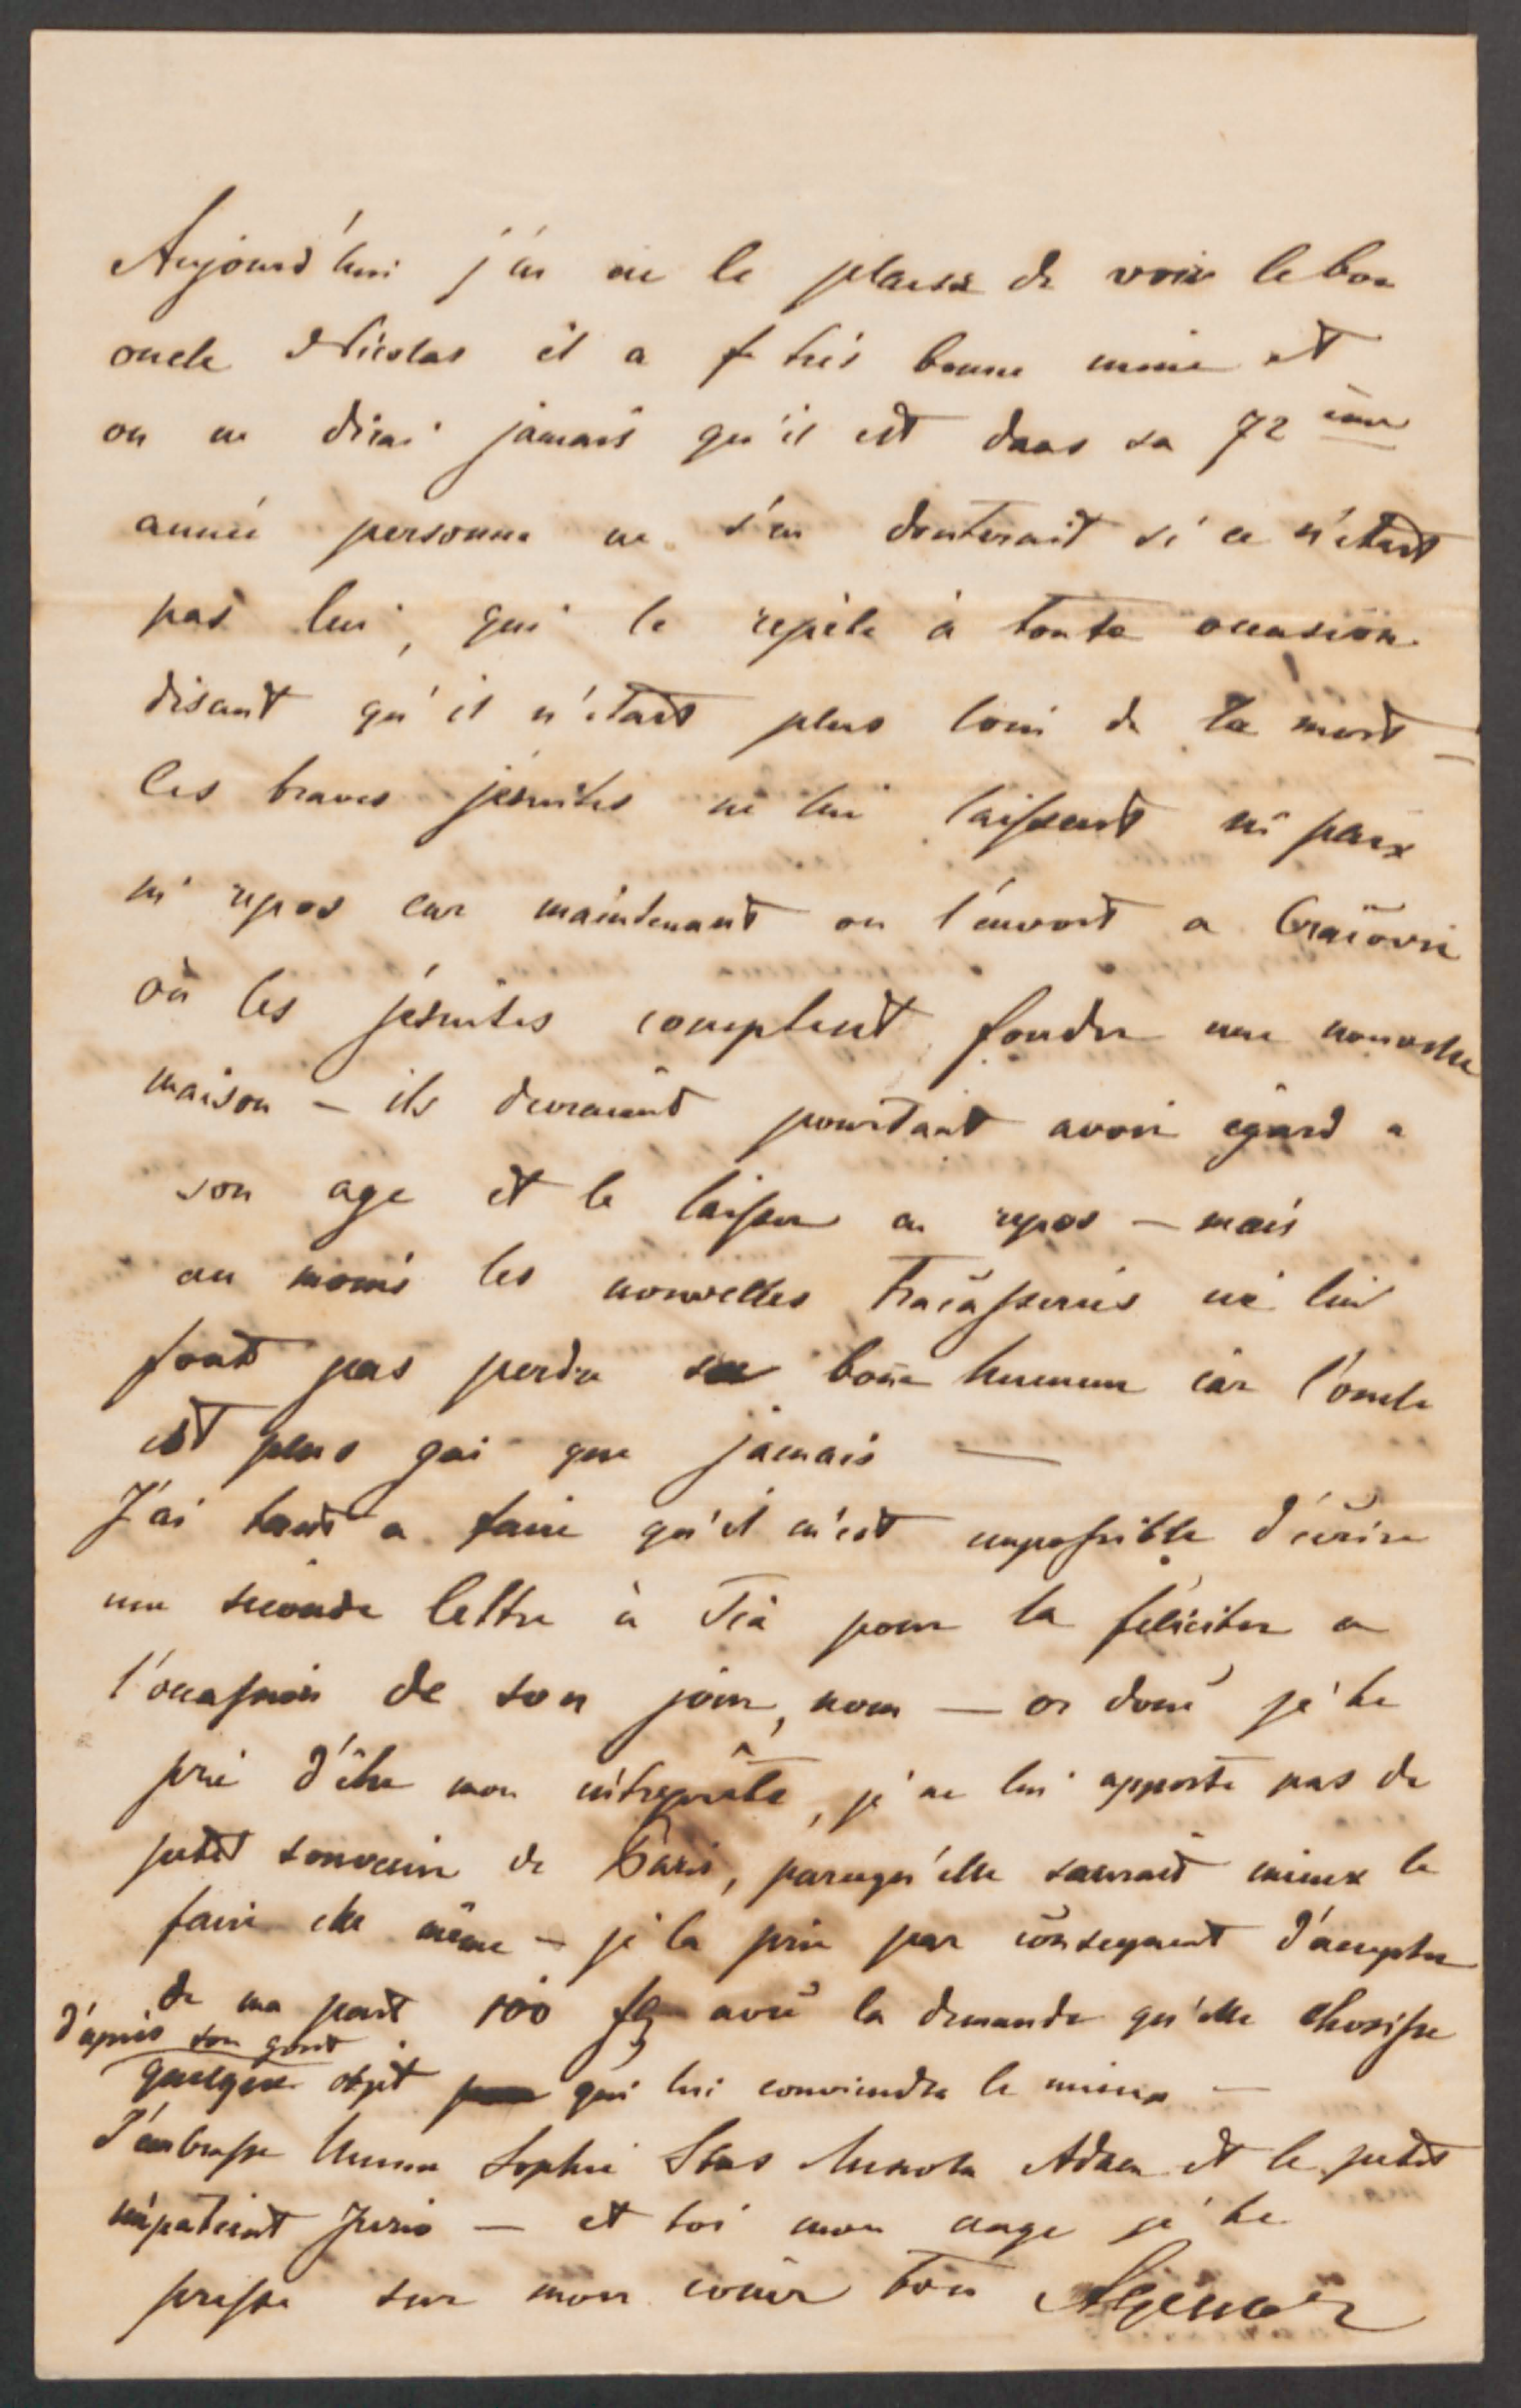 Aujourd'hui j'ai eu le plaisir de voir le bon
oncle Nicolas il a très bonne mine et
on ne dirai jamais qu'il est dans sa 72 ème
année personne ne s'en douterait si ce n'était
pas lui, qui le repète à toute occasion
disant qu'il n'était plus loin de la mort —
les braves jésuites ne lui laissent ni paix
ni repos car maintenant on l'envoit a Cracovie
où les jésuites comptent fonder une nouvelle
maison — ils devraient pourtant avoir égard a
son age et le laisser en repos — mais
au moins les nouvelles tracasseries ne lui
font pas perdre sa bonne humeur car l'oncle
est plus gai que jamais —
J'ai tant a faire qu'il m'est impossible d'écrire
une seconde lettre à Tia pour la féliciter a
l'occassion de son jour, nom — or donc je te
prie d'être mon intreprête, je ne lui apporte pas de
petit souvenir de Paris, parcequ'elle saurait mieux le
faire elle même — je la prie par conséquent d'accepter
de ma part 100 fl avec la demande qu'elle choisisse
d'après son gout
quelque objet qui lui conviendra le mieux —
J'embrasse Sophie Stas Adam et le petit
impatient Juris — et toi mon ange je te
presse sur mon coeur ton Agenor